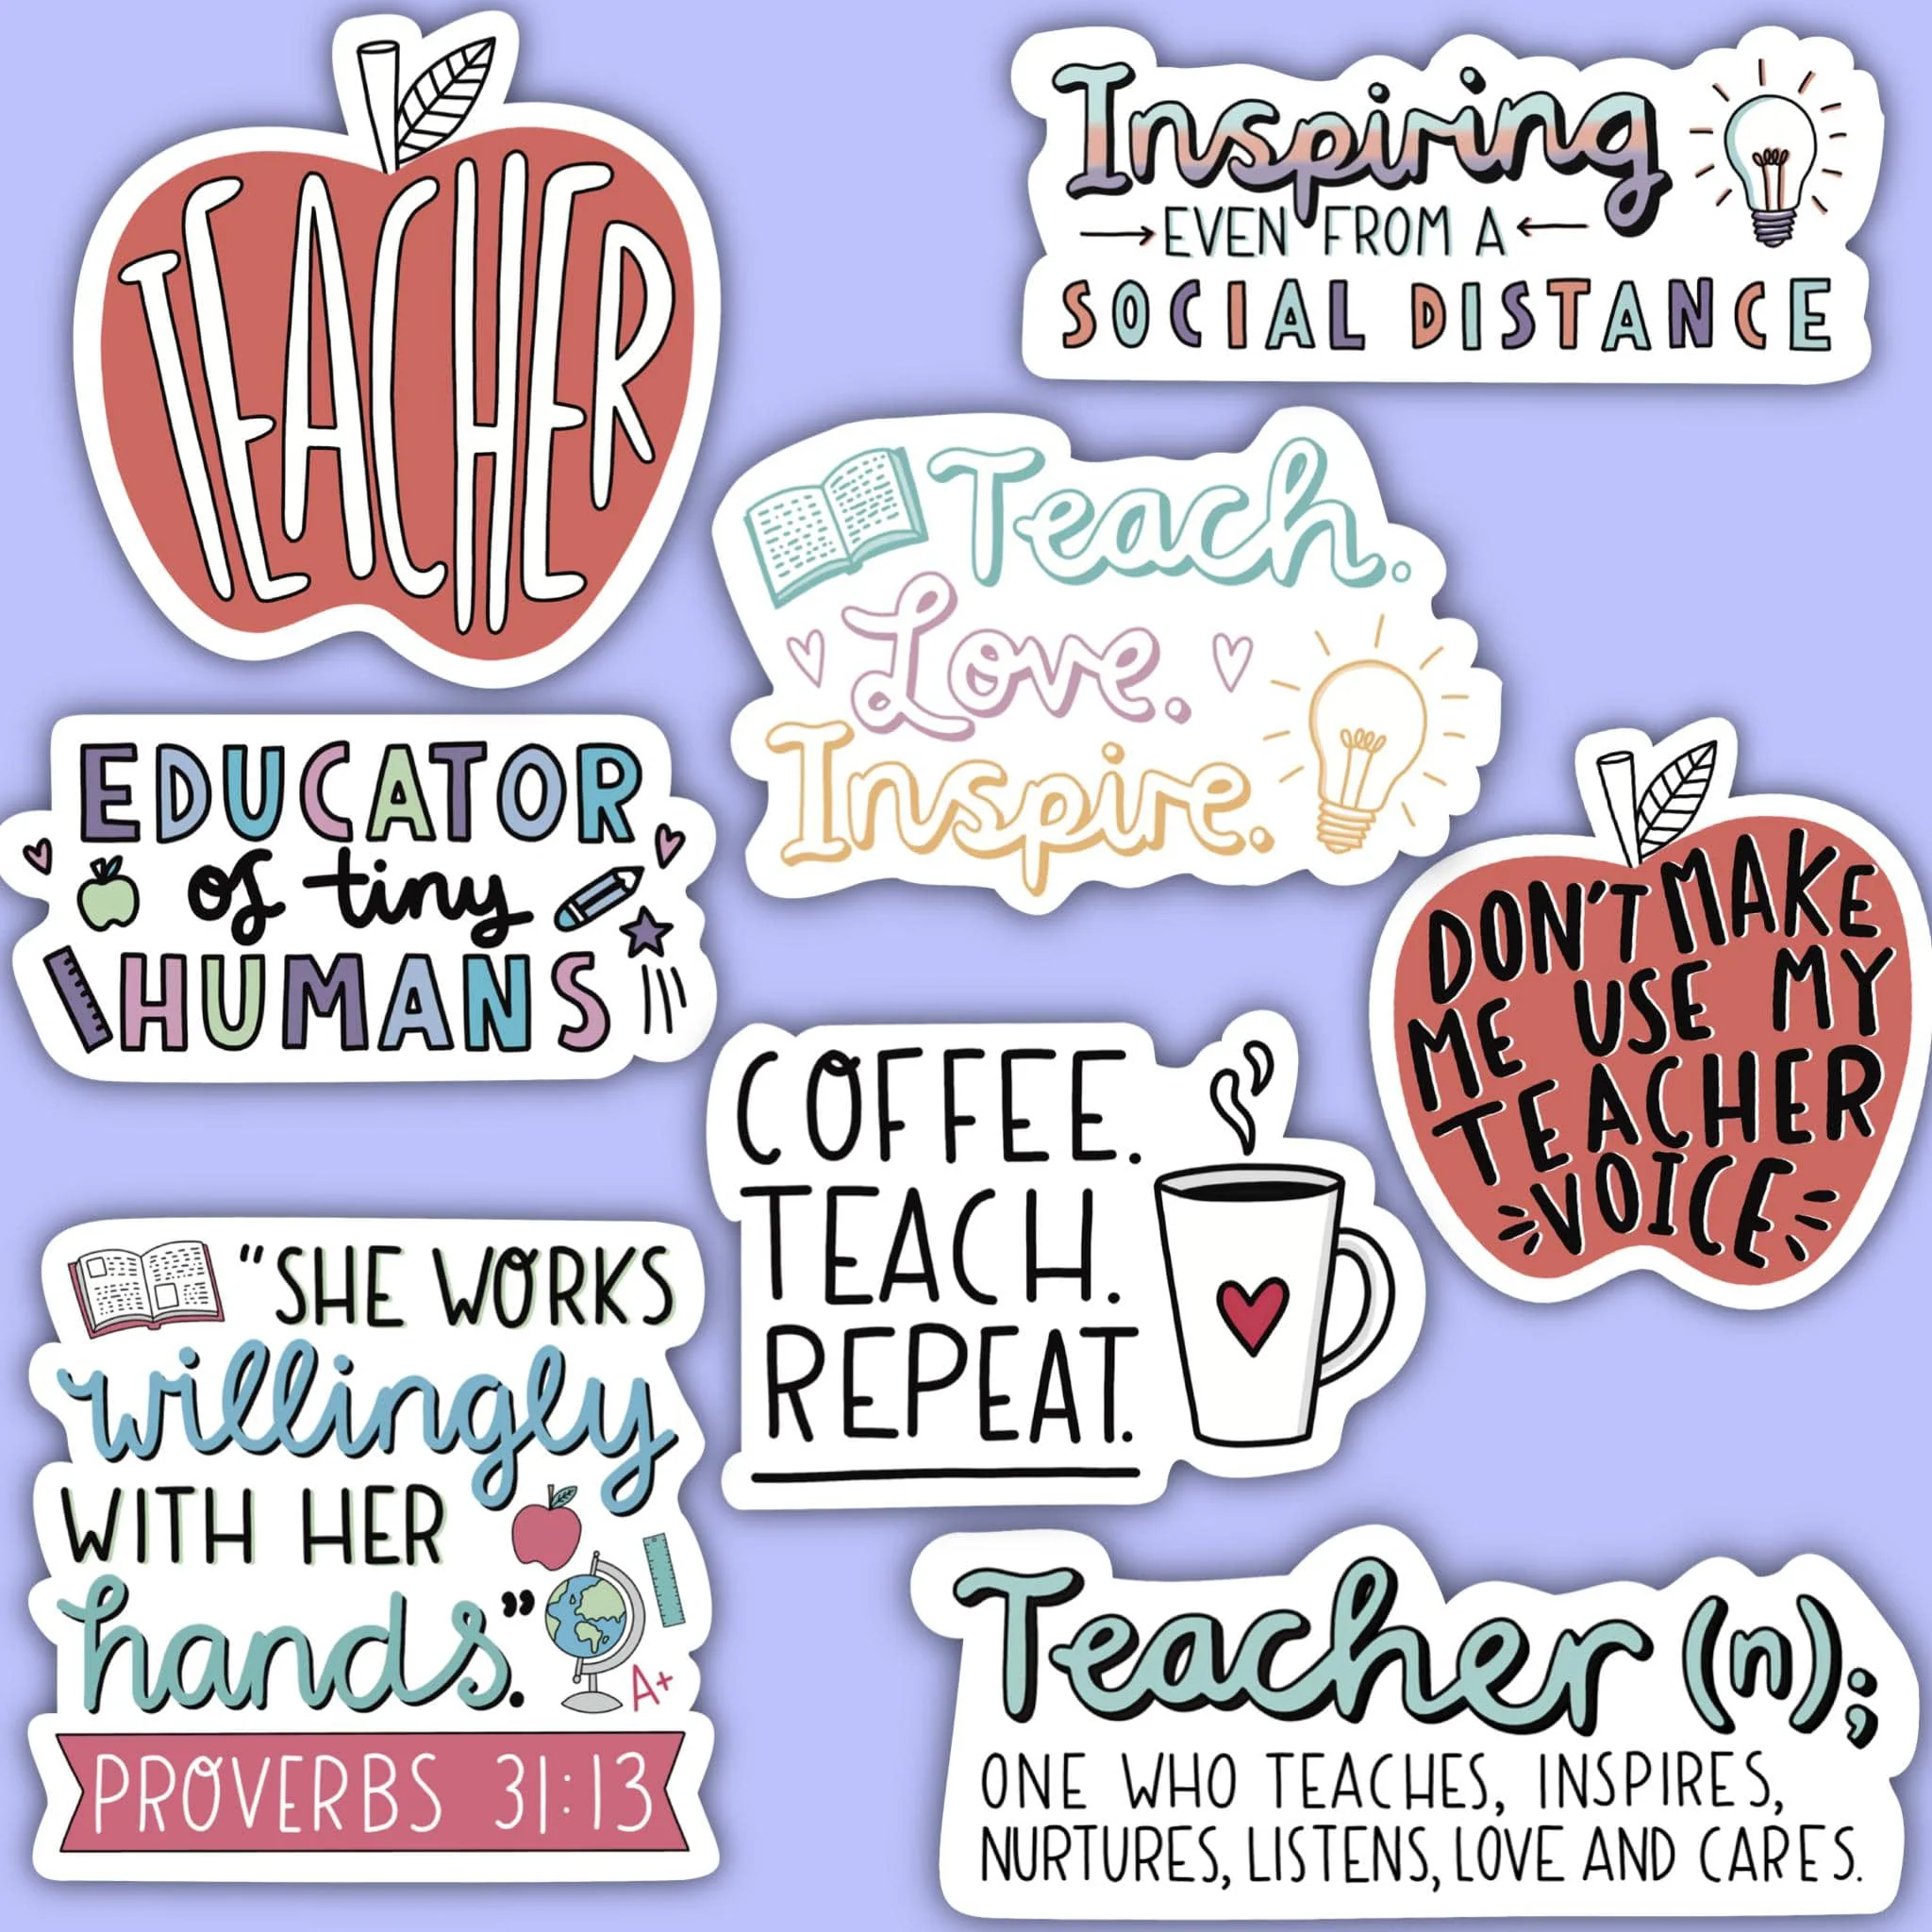 TEACHER
Inspiring
EVEN FROM A
SOCIAL DISTANCE
Teach.
Love.
Inspire.
EDUCATOR
of tiny
HUMANS
DON'T MAKE
ME USE MY
TEACHER
VOICE
COFFEE.
TEACH.
REPEAT.
"SHE WORKS
willingly
WITH HER
hands."
A+
PROVERBS 31:13
Teacher (n);
ONE WHO TEACHES, INSPIRES,
NURTURES, LISTENS, LOVE AND CARES.